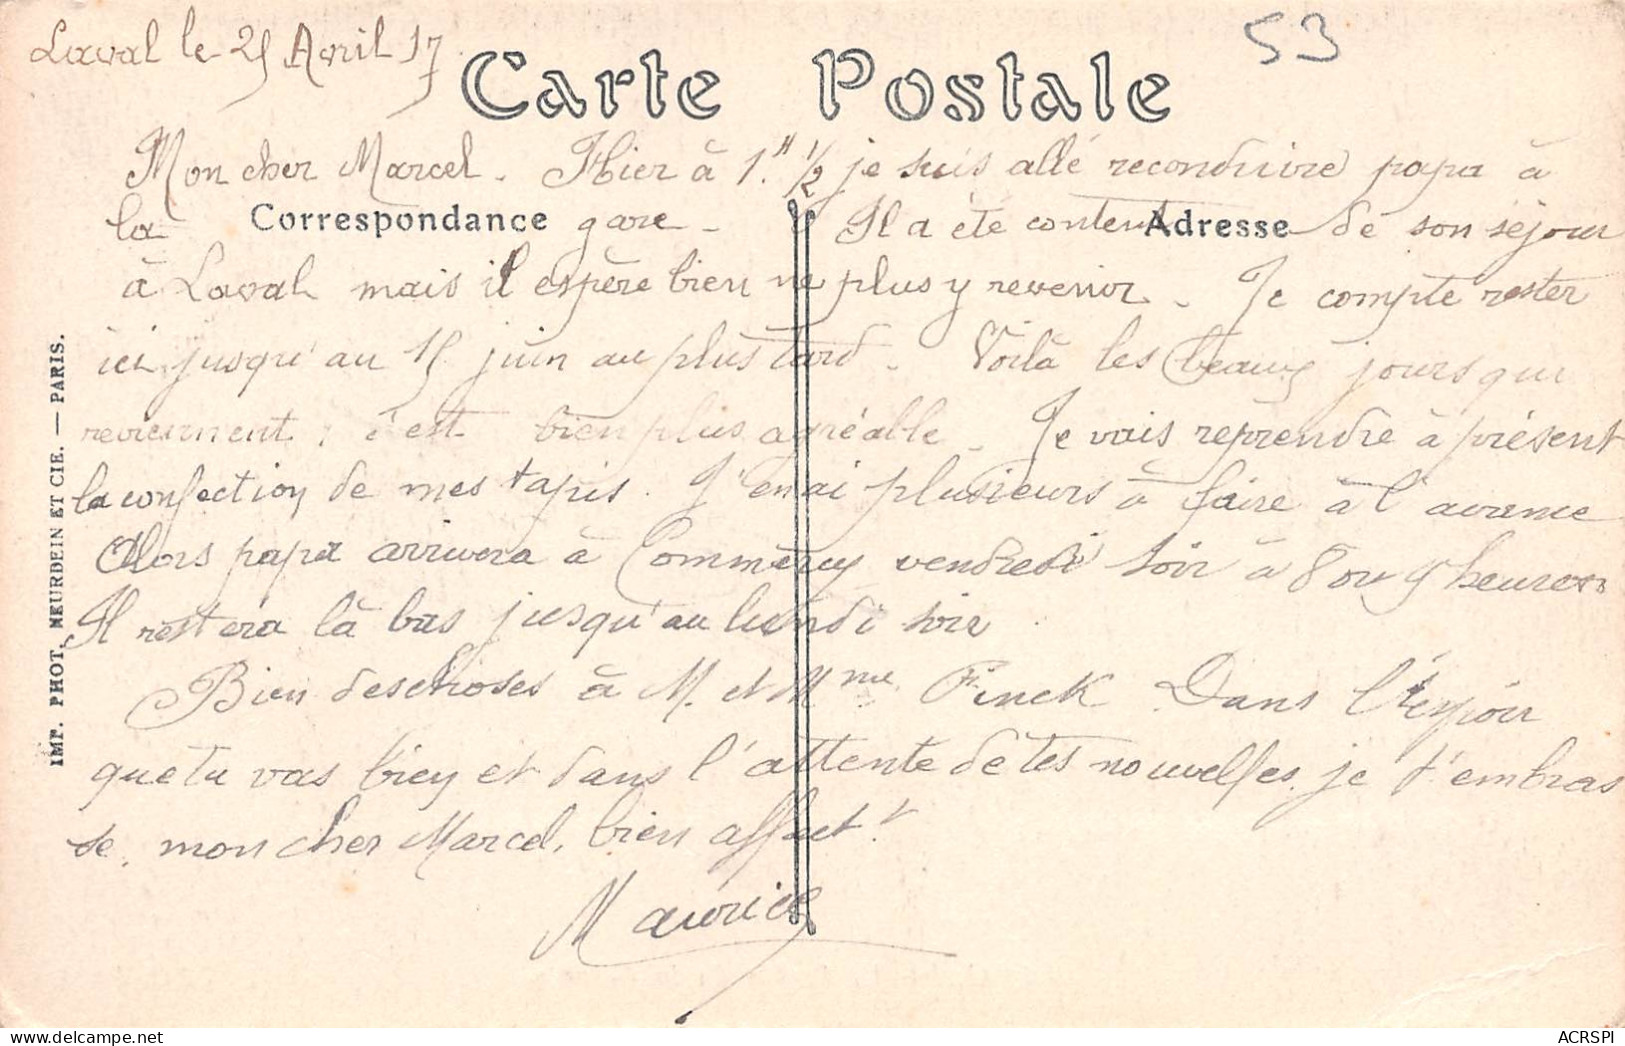 Laval le 25 Avril 17
53
Carte Postale
Mon cher Marcel. Hier à 1.H 1/2 je suis allé reconduire papa à
la gare - Il a été content de son séjour
Correspondance
Adresse
à Laval mais il espère bien ne plus y revenir. Je compte rester
ici jusqu'au 15 juin au plus tard. Voilà les beaux jours qui
reviennent, c'est bien plus agréable. Je vais reprendre à présent
la confection de mes tapis. J'en ai plusieurs à faire à l'avance
Alors papa arrivera à Commercy vendredi soir à 8 ou 9 heures
Il restera là bas jusqu'au lundi soir
Bien des choses à M. et Mme Finck Dans l'espoir
que tu vas bien et dans l'attente de tes nouvelles, je t'embras
se, mon cher Marcel, bien affect.t
Maurice
IMP. PHOT. NEURDEIN ET CIE. — PARIS.
ACRSPI